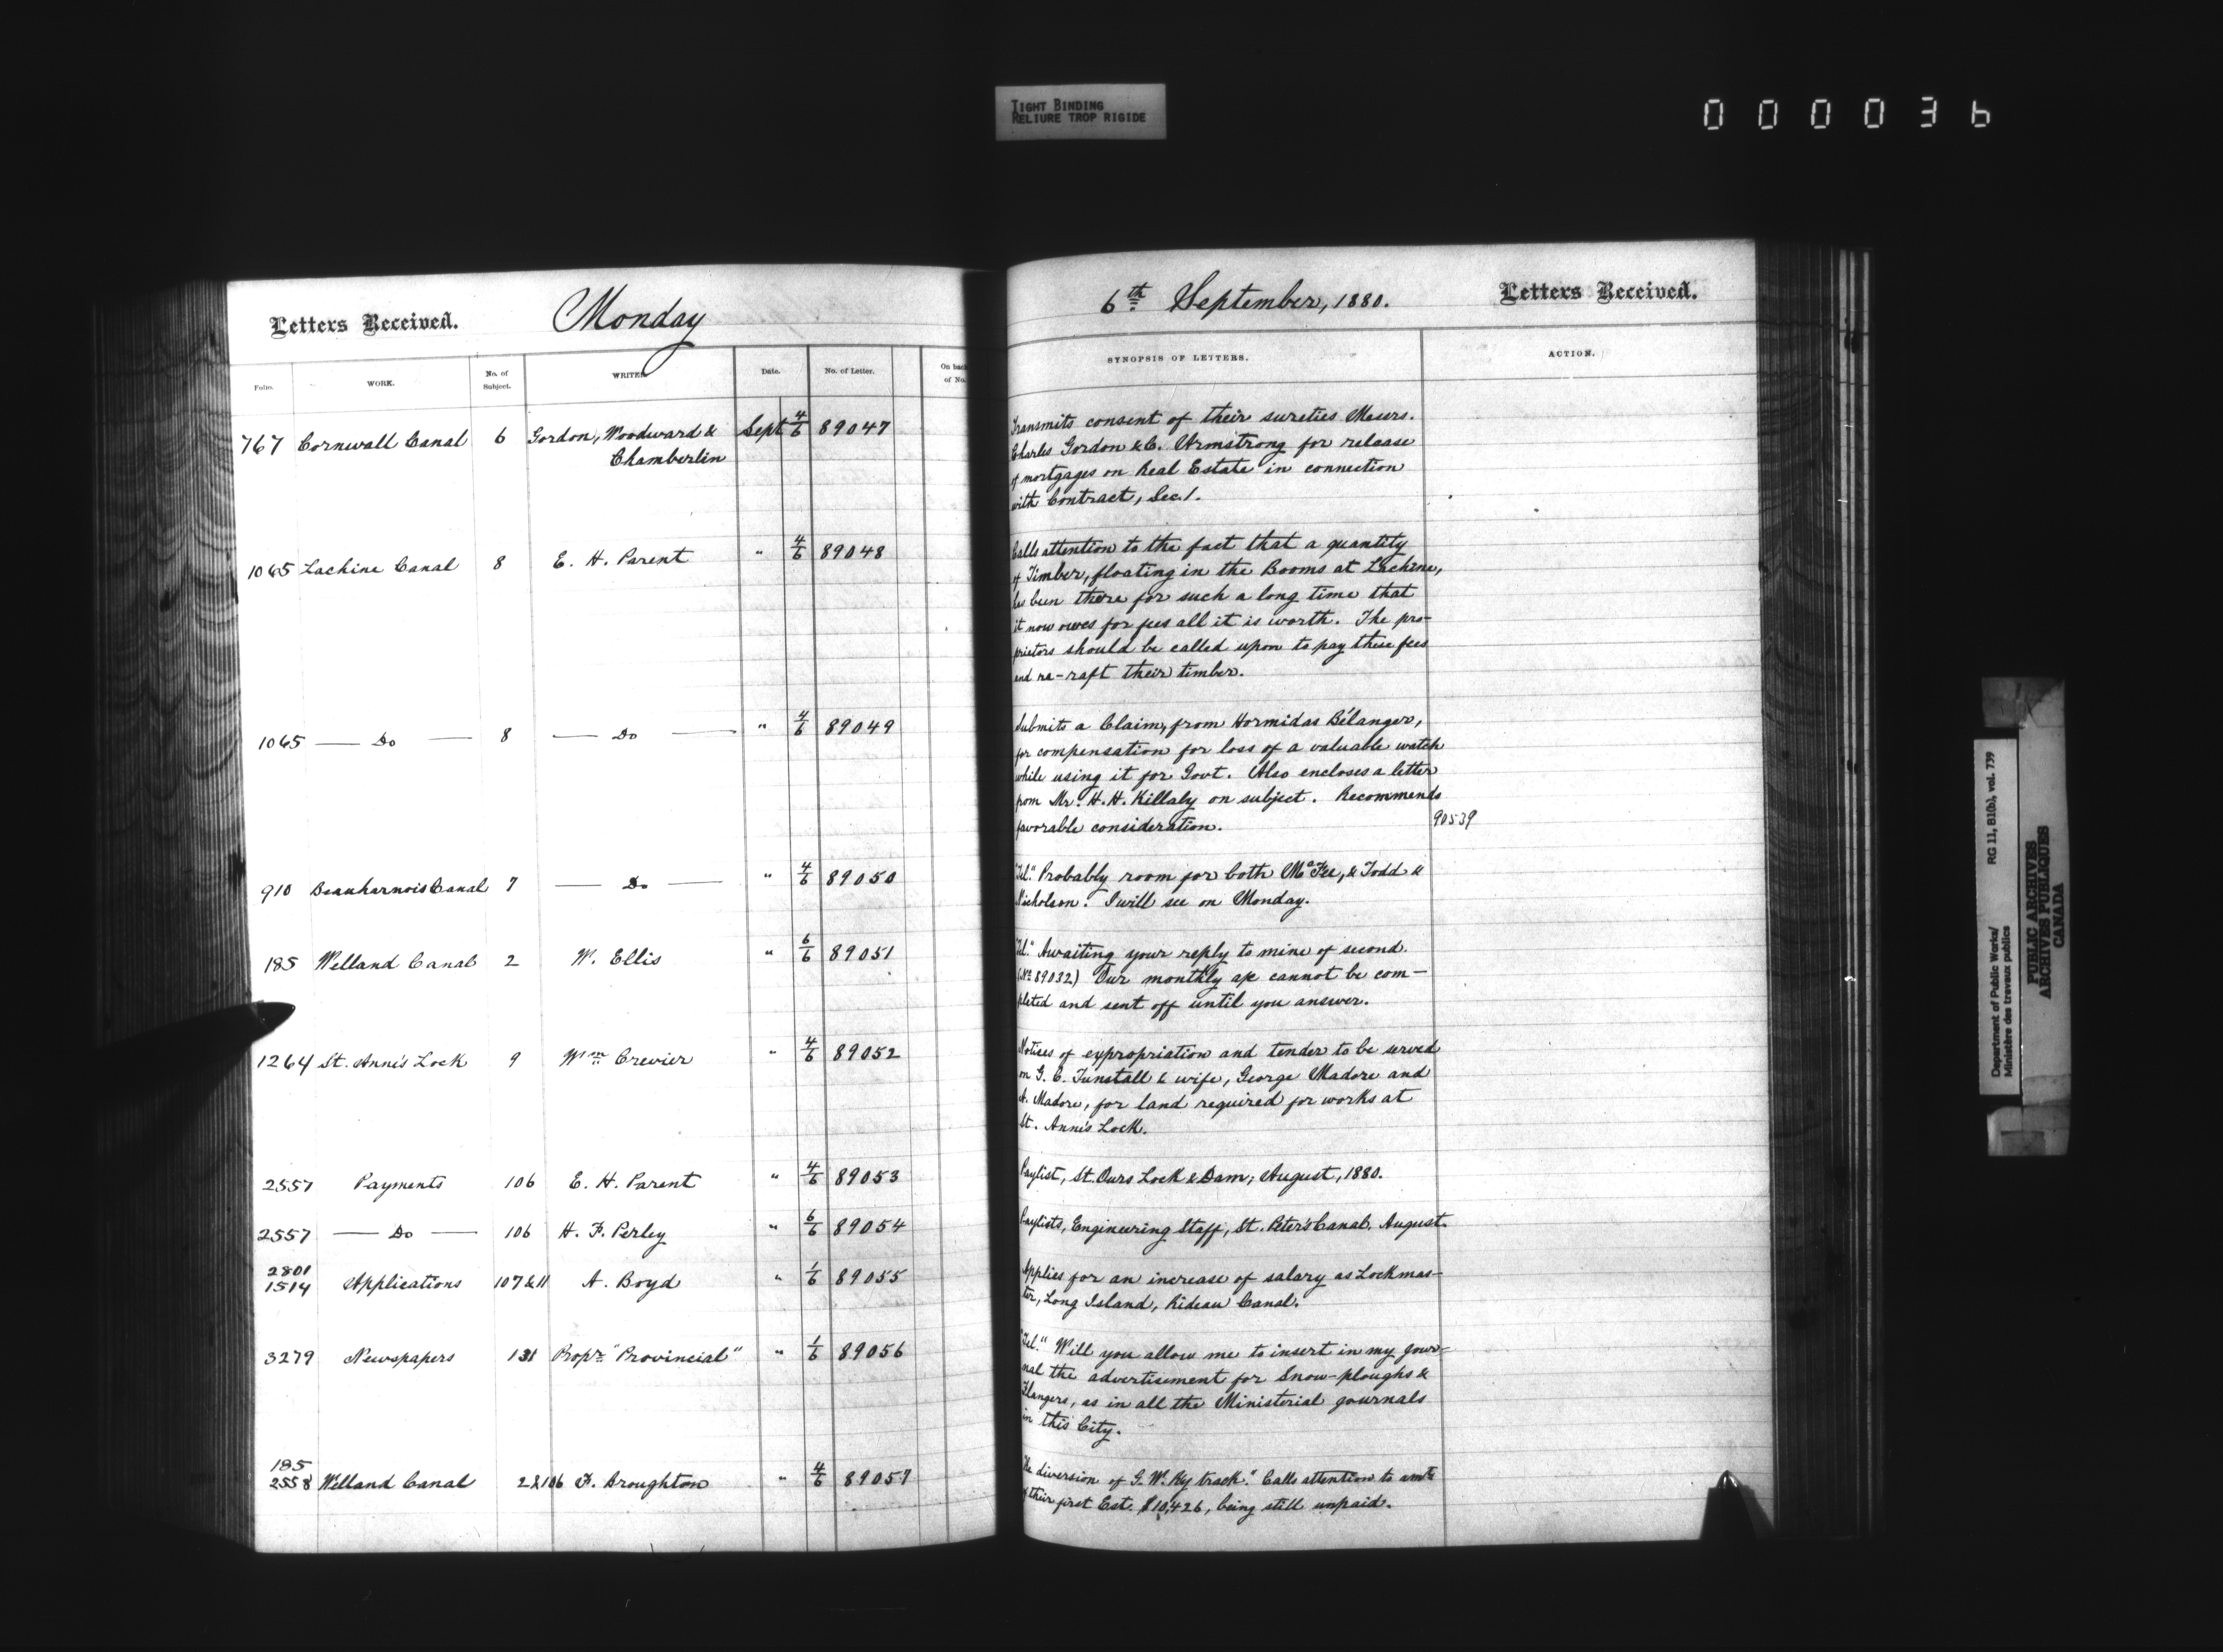 TIGHT BINDING
RELIURE TROP RIGIDE
000036
Letters Received. Monday
Folio. WORK. No. of Subject. WRITER. Date. No. of Letter. On back of No.
767 Cornwall Canal 6 Gordon, Woodward & Sept 4/6 89047
Chamberlin
1065 Lachine Canal 8 E. H. Parent " 4/6 89048
1065 — Do — 8 — Do — " 4/6 89049
910 Beauharnois Canal 7 — Do — " 4/6 89050
185 Welland Canal 2 W. Ellis " 6/6 89051
1264 St. Anne's Lock 9 Wm Crevier " 4/6 89052
2557 Payments 106 E. H. Parent " 4/6 89053
2557 — Do — 106 H. F. Perley " 6/6 89054
2801
1514 Applications 107 & 11 A. Boyd " 1/6 89055
3279 Newspapers 131 Propr "Provincial" " 1/6 89056
185
2558 Welland Canal 2 & 106 F. Broughton " 4/6 89057
6th September, 1880. Letters Received.
SYNOPSIS OF LETTERS. ACTION.
Transmits consent of their sureties Messrs.
Charles Gordon & C. Armstrong for release
of mortgages on Real Estate in connection
with Contract, Sec. 1.
Calls attention to the fact that a quantity
of Timber, floating in the Booms at Lachine,
has been there for such a long time that
it now owes for fees all it is worth. The pro-
prietors should be called upon to pay these fees
and re-raft their timber.
Submits a Claim, from Hormidas Bélanger,
for compensation for loss of a valuable watch
while using it for Govt. Also encloses a letter
from Mr. H. H. Killaly on subject. Recommends
favorable consideration. 90539
"Tel." Probably room for both McFee, & Todd &
Nicholson. I will see on Monday.
"Tel." Awaiting your reply to mine of second.
(No 89032) Our monthly a/c cannot be com-
pleted and sent off until you answer.
Notices of expropriation and tender to be served
on G. C. Tunstall & wife, George Madore and
A. Madore, for land required for works at
St. Anne's Lock.
Paylist, St. Ours Lock & Dam, August, 1880.
Paylists, Engineering Staff, St. Peter's Canal, August.
Applies for an increase of salary as Lockmas-
ter, Long Island, Rideau Canal.
"Tel." Will you allow me to insert in my jour-
nal the advertisement for Snow-ploughs &
Flangers, as in all the Ministerial journals
in this City.
"The diversion of G. W. Ry track." Calls attention to amt
of their first Est. $10,426, being still unpaid.
Department of Public Works/ RG 11, B1(b), vol. 739
Ministère des travaux publics
PUBLIC ARCHIVES
ARCHIVES PUBLIQUES
CANADA